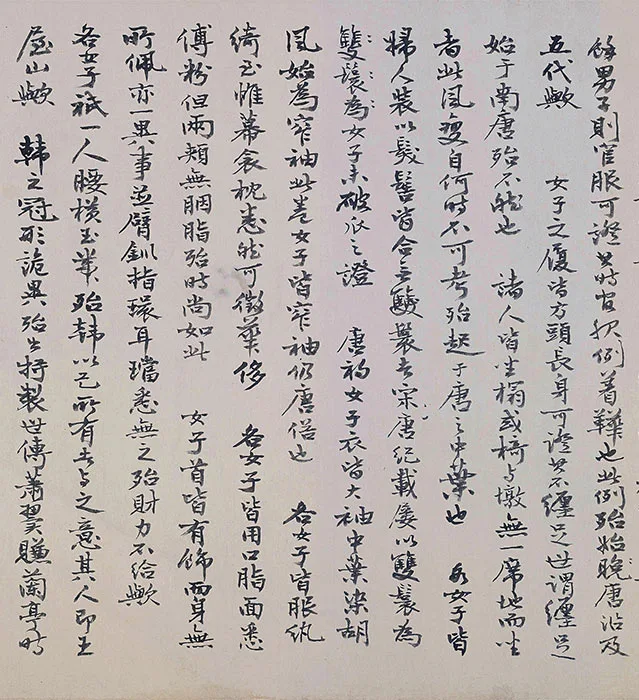 餘男子則官服可證其時官服例著鞾也此例殆始晚唐沿及
五代歟　女子之履皆方頭長身可證其不纏足世謂纏足
始于南唐殆不然也　諸人皆坐榻或椅与墩無一席地而坐
者此風變自何時不可考殆起于唐之中葉也　各女子皆
婦人裝以髮髻皆合云雙鬟考宋唐紀載屢以雙鬟為
雙鬟為女子未破瓜之證　唐初女子衣皆大袖中葉染胡
風始為窄袖此卷女子皆窄袖仍唐俗也　各女子皆服紈
綺至帷幕衾枕悉然可徵華侈　各女子皆用口脂面悉
傅粉但兩頰無胭脂殆時尚如此　女子首皆有飾而身無
所佩亦一異事並臂釧指環耳璫悉無之殆財力不給歟
各女子祇一人腰橫玉篴殆韓以己所有者与之意其人即王
屋山歟　韓之冠形詭異殆出特製世傳蕭翼賺蘭亭時